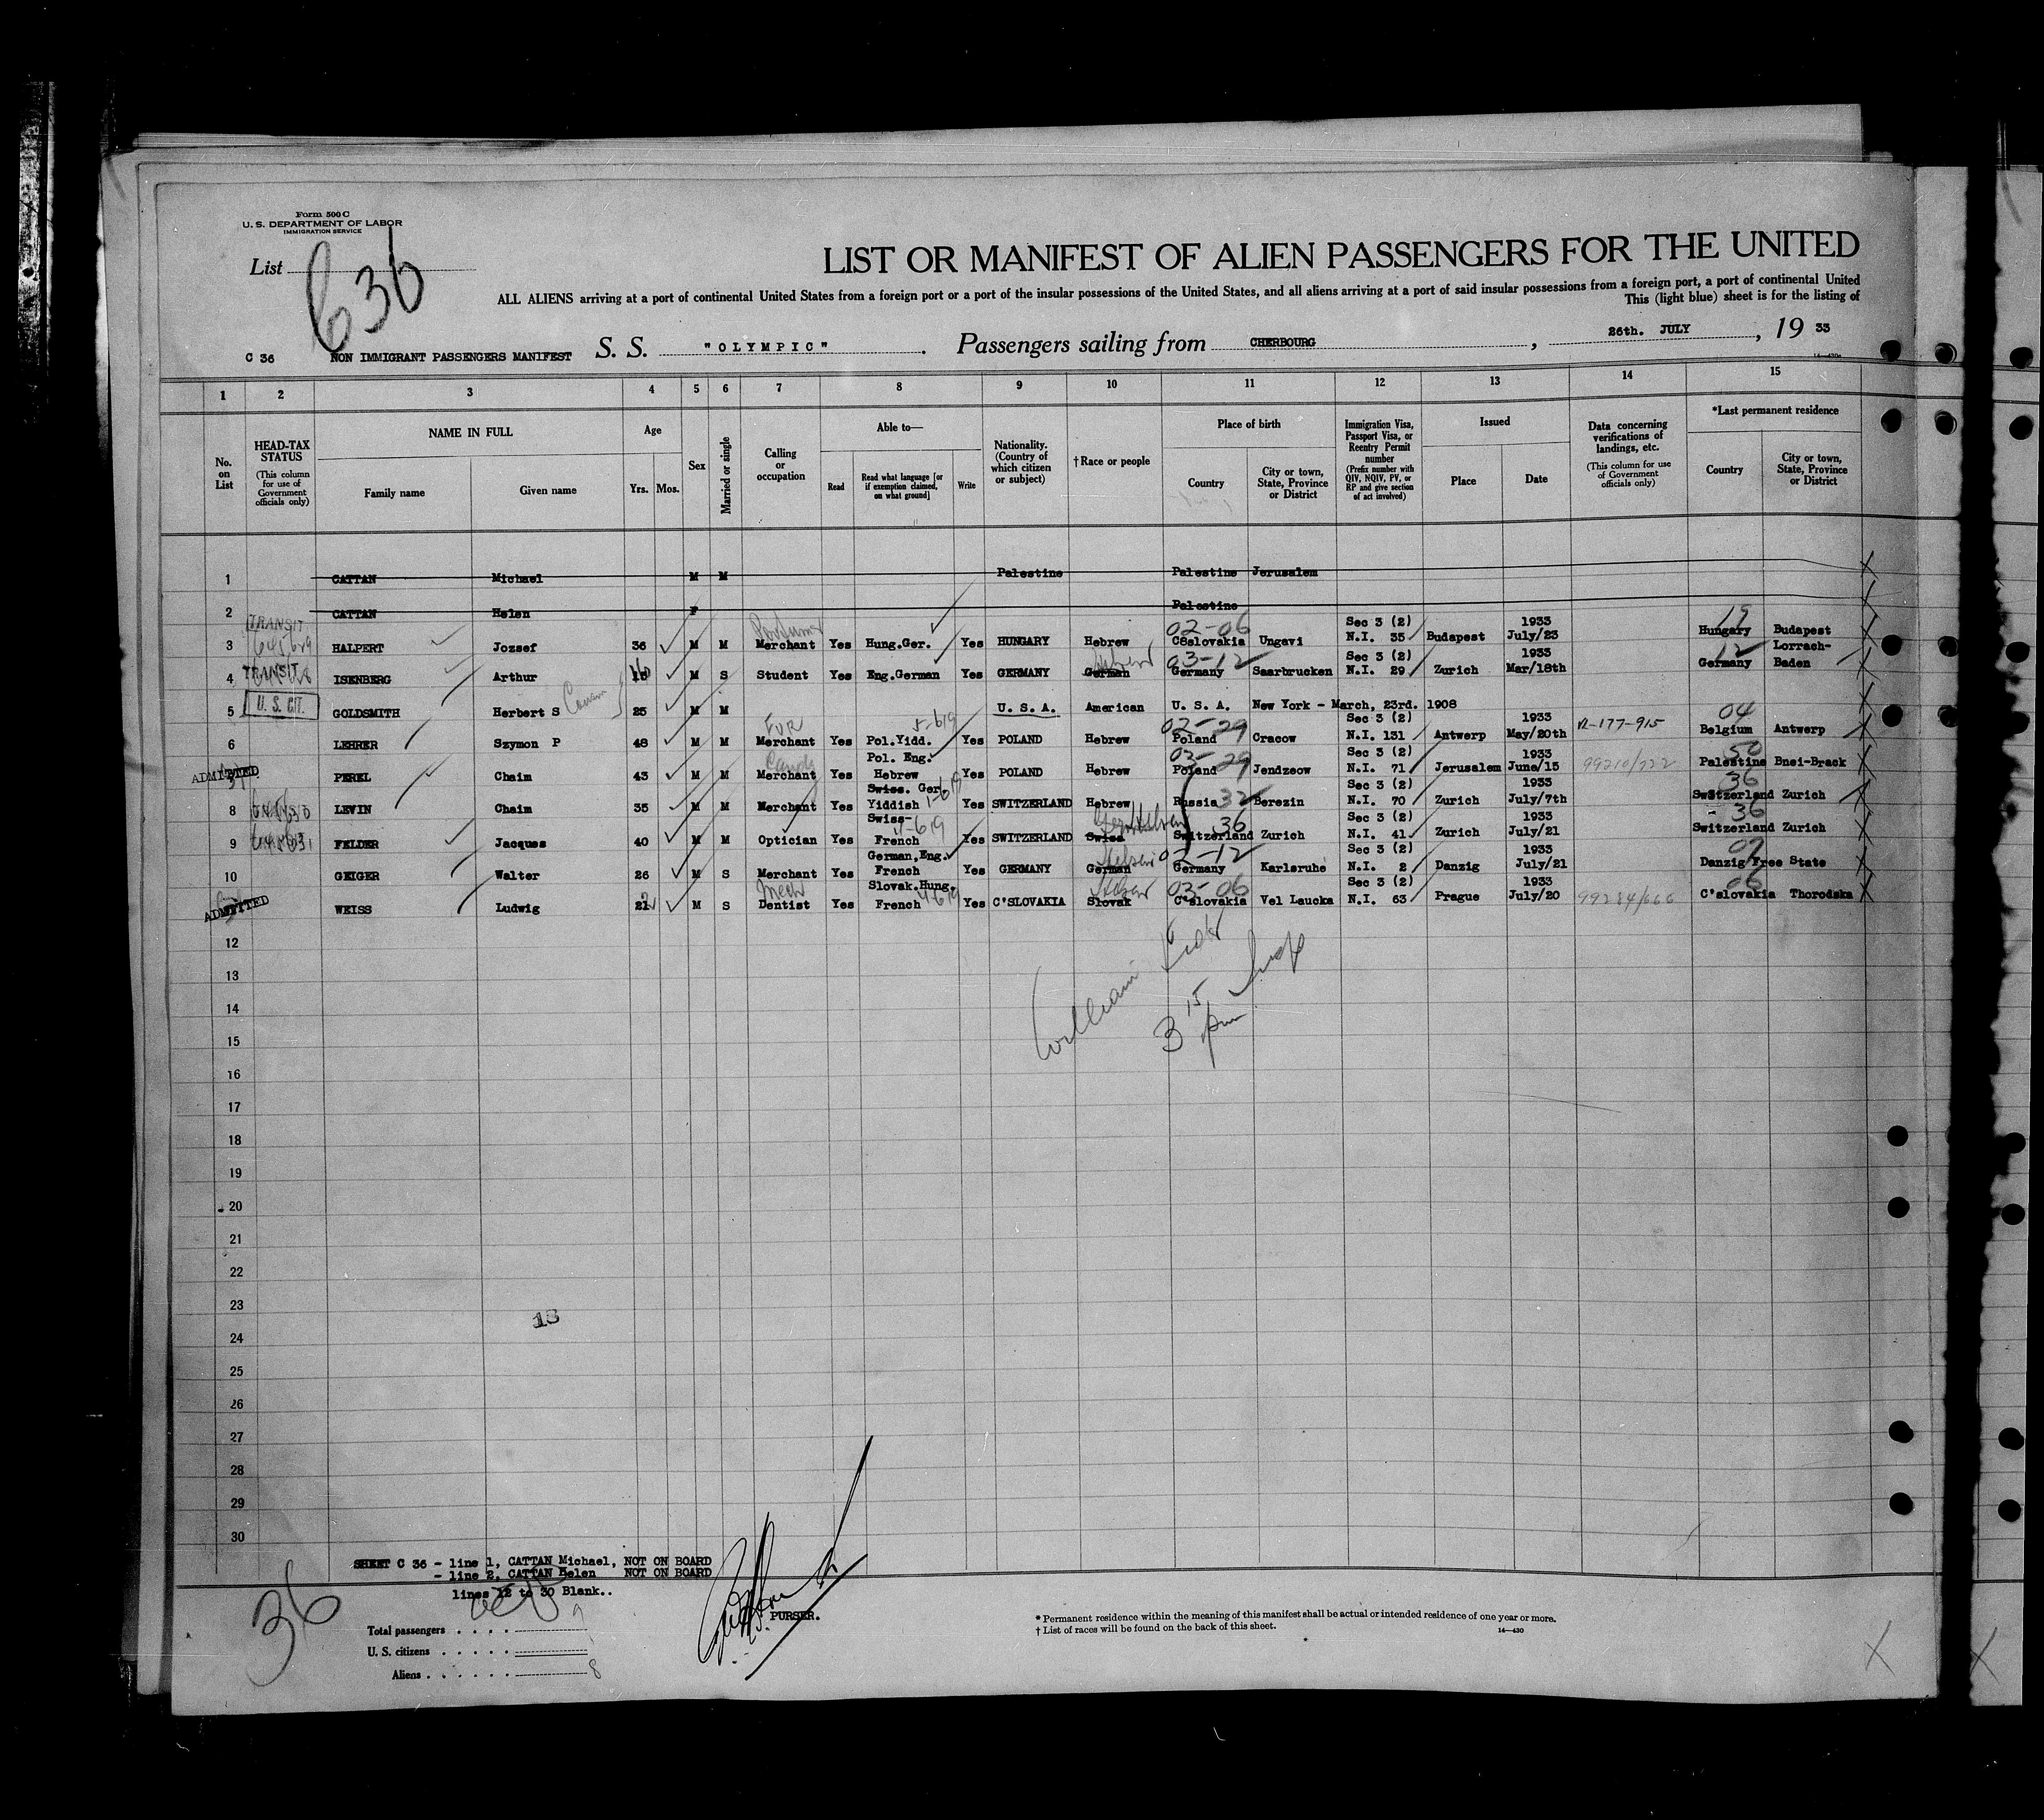 Form 500 C
U. S. DEPARTMENT OF LABOR
IMMIGRATION SERVICE
List
C 36
LIST OR MANIFEST OF ALIEN PASSENGERS FOR THE UNITED
ALL ALIENS arriving at a port of continental United States from a foreign port or a port of the insular possessions of the United States, and all aliens arriving at a port of said insular possessions from a foreign port, a port of continental United
This (light blue) sheet is for the listing of
C 36 NON IMMIGRANT PASSENGERS MANIFEST S. S. "OLYMPIC". Passengers sailing from CHERBOURG, 26th. JULY, 19 33
14—430a
1 2 3 4 5 6 7 8 9 10 11 12 13 14 15
No. on List
HEAD-TAX STATUS (This column for use of Government officials only)
NAME IN FULL
Family name Given name
Age
Yrs. Mos.
Sex
Married or single
Calling or occupation
Able to—
Read
Read what language [or if exemption claimed, on what ground]
Write
Nationality. (Country of which citizen or subject)
† Race or people
Place of birth
Country
City or town, State, Province or District
Immigration Visa, Passport Visa, or Reentry Permit number (Prefix number with QIV, NQIV, PV, or RP and give section of act involved)
Issued
Place Date
Data concerning verifications of landings, etc. (This column for use of Government officials only)
*Last permanent residence
Country
City or town, State, Province or District
1 CATTAN Michael M M Palestine Palestine Jerusalem
2 CATTAN Helen F Palestine
TRANSIT 02-06 Sec 3 (2) 1933 19
3 HALPERT Jozsef 36 M M Merchant Yes Hung.Ger. Yes HUNGARY Hebrew CSslovakia Ungavi N.I. 35 Budapest July/23 Hungary Budapest
TRANSIT Hebrew 03-12 Sec 3 (2) 1933 12 Lorrach-
4 ISENBERG Arthur M S Student Yes Eng.German Yes GERMANY German Germany Saarbrucken N.I. 29 Zurich Mar/18th Germany Baden
U. S. CIT.
5 GOLDSMITH Herbert S 25 M M U. S. A. American U. S. A. New York - March, 23rd. 1908
Fur 5-619 02-29 Sec 3 (2) 1933 04
6 LEHRER Szymon P 48 M M Merchant Yes Pol.Yidd. Yes POLAND Hebrew Poland Cracow N.I. 131 Antwerp May/20th R-177-915 Belgium Antwerp
Candy Pol. Eng. 03-29 Sec 3 (2) 1933 50
ADMITTED PEREL Chaim 43 M M Merchant Yes Hebrew Yes POLAND Hebrew Poland Jendzeow N.I. 71 Jerusalem June/15 99210/722 Palestine Bnei-Brack
Swiss. Ger. 1-619 Sec 3 (2) 1933 36
8 LEVIN Chaim 35 M M Merchant Yes Yiddish Yes SWITZERLAND Hebrew Russia 32 Berezin N.I. 70 Zurich July/7th Switzerland Zurich
Swiss- 11-619 36 Sec 3 (2) 1933 36
9 FELDER Jacques 40 M M Optician Yes French Yes SWITZERLAND Swiss Switzerland Zurich N.I. 41 Zurich July/21 Switzerland Zurich
German,Eng. Hebrew 02-12 Sec 3 (2) 1933 09
10 GEIGER Walter 26 M S Merchant Yes French Yes GERMANY German Germany Karlsruhe N.I. 2 Danzig July/21 Danzig Free State
Slovak.Hung. Hebrew 03-06 Sec 3 (2) 1933 06
ADMITTED WEISS Ludwig M S Dentist Yes French Yes C'SLOVAKIA Slovak C'slovakia Vel Laucka N.I. 63 Prague July/20 99284/666 C'slovakia Thorodska
12
William
13
14
3 15 pm
15
16
17
18
19
20
21
22
23
13
24
25
26
27
28
29
30
SHEET C 36 - line 1, CATTAN Michael, NOT ON BOARD
- line 2, CATTAN Helen NOT ON BOARD
lines 12 to 30 Blank..
36
PURSER.
Total passengers 9
U. S. citizens
Aliens 8
* Permanent residence within the meaning of this manifest shall be actual or intended residence of one year or more.
† List of races will be found on the back of this sheet.
14—430